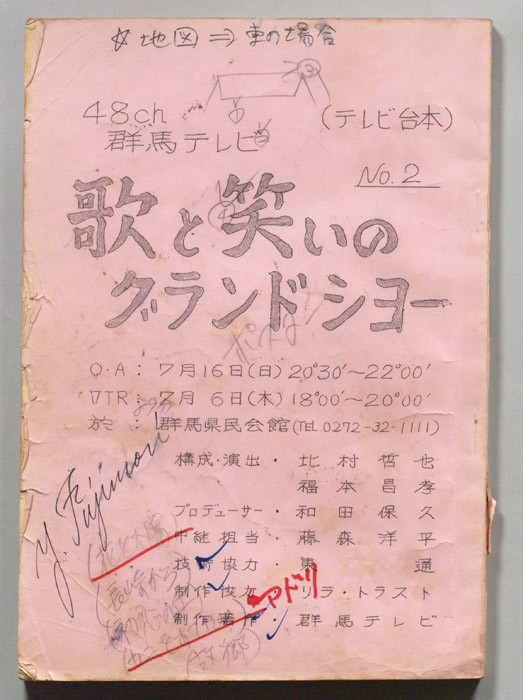 ☆地図⇒車の場合
48ch
群馬テレビ
(テレビ台本)
No.2
歌と笑いの
グランドショー
O.A : 7月16日(日) 20°30′～22°00′
VTR : 7月 6日(木) 18°00′～20°00′
於 : 群馬県民会館(TEL 0272-32-1111)
構成・演出・北村哲也
福本昌孝
プロデューサー・和田保久
中継担当・藤森洋平
技術協力・東通
制作協力・リラ・トラスト
アドリ
制作著作・群馬テレビ
Y. Fujimori
故郷